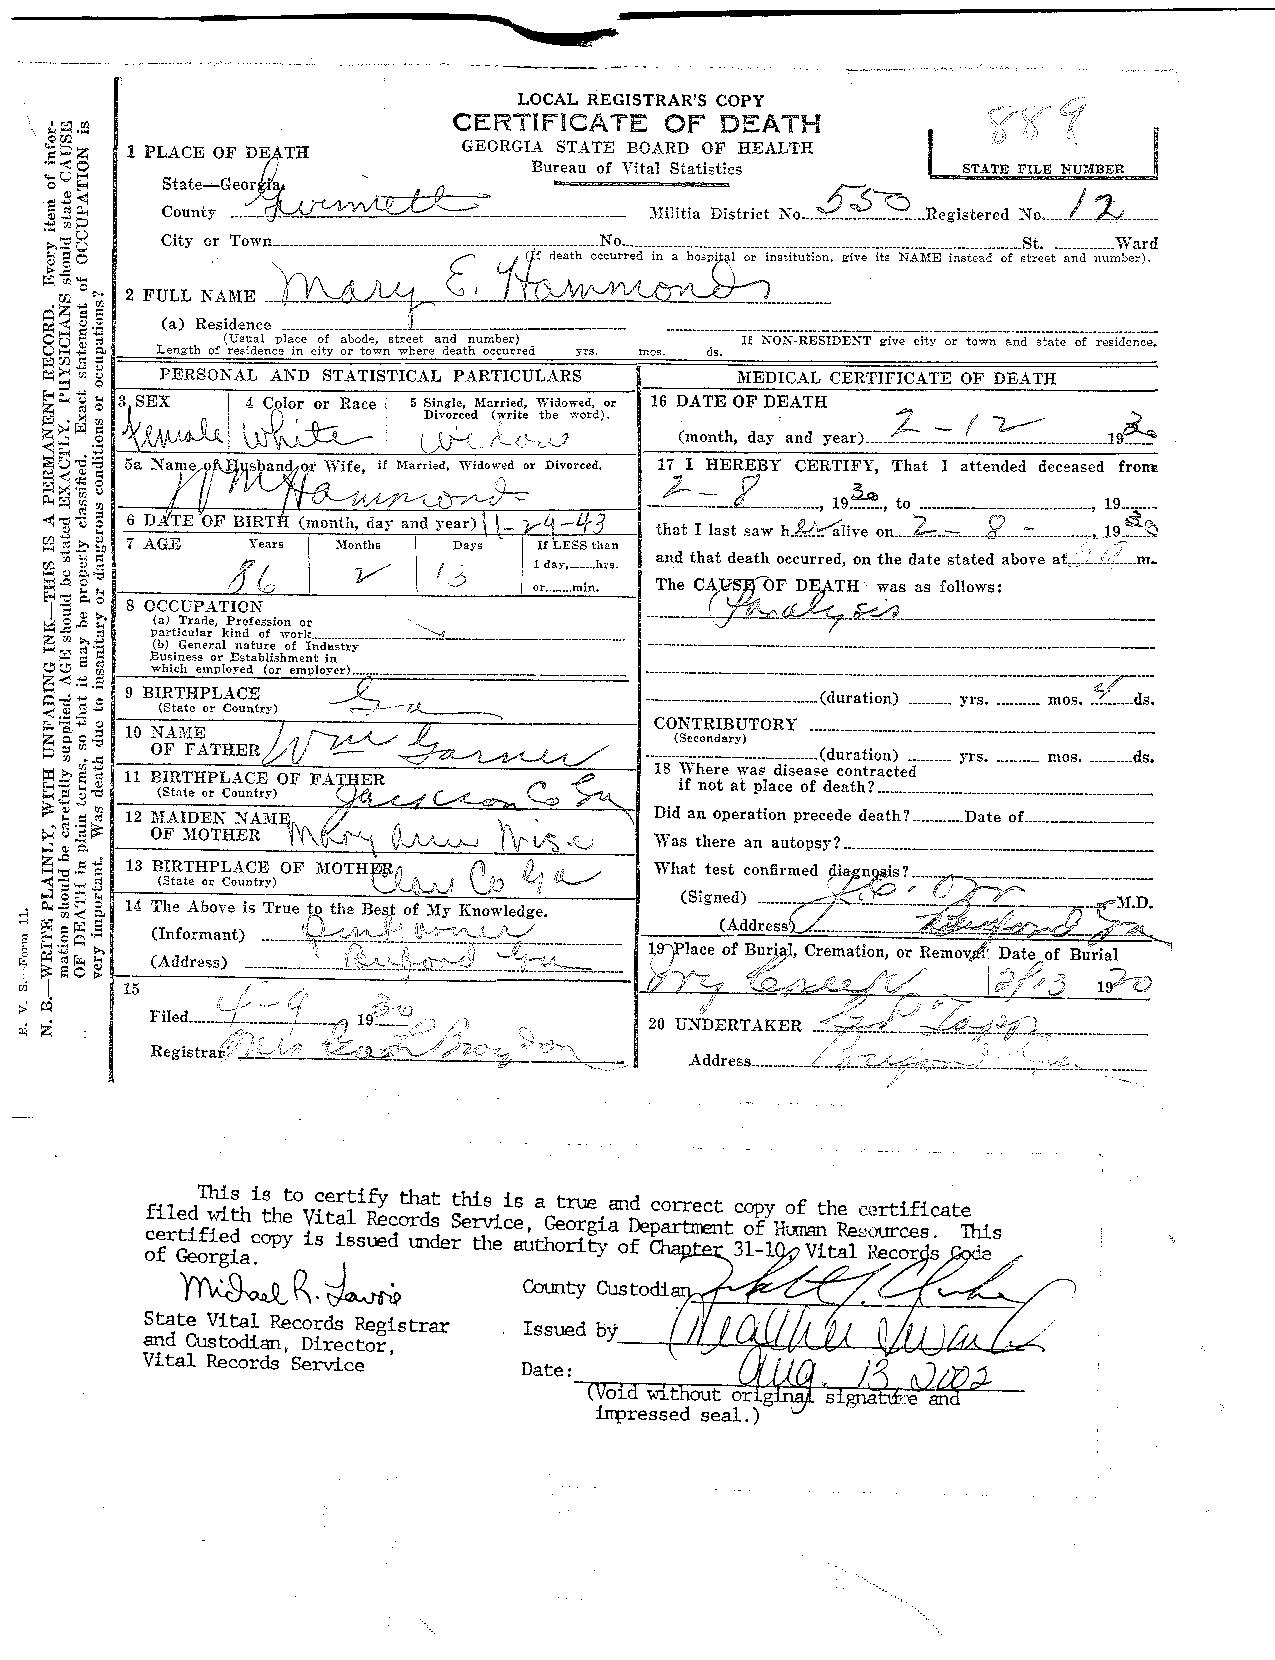 LOCAL REGISTRAR'S COPY
CERTIFICATE OF DEATH
GEORGIA STATE BOARD OF HEALTH
Bureau of Vital Statistics
889
STATE FILE NUMBER
1 PLACE OF DEATH
State—Georgia,
County Gwinnett Militia District No. 550 Registered No. 12
City or Town No. St. Ward
(If death occurred in a hospital or institution, give its NAME instead of street and number).
2 FULL NAME Mary E. Hammonds
(a) Residence
(Usual place of abode, street and number) If NON-RESIDENT give city or town and state of residence.
Length of residence in city or town where death occurred yrs. mos. ds.
PERSONAL AND STATISTICAL PARTICULARS
3 SEX 4 Color or Race 5 Single, Married, Widowed, or Divorced (write the word).
Female White Widow
5a Name of Husband or Wife, if Married, Widowed or Divorced.
Hammonds
6 DATE OF BIRTH (month, day and year) 11-29-43
7 AGE Years Months Days If LESS than
1 day, hrs.
86 2 13 or min.
8 OCCUPATION
(a) Trade, Profession or
particular kind of work
(b) General nature of Industry
Business or Establishment in
which employed (or employer)
9 BIRTHPLACE
(State or Country) Ga
10 NAME
OF FATHER Wm Garner
11 BIRTHPLACE OF FATHER
(State or Country) Jackson Co Ga
12 MAIDEN NAME
OF MOTHER Mary Ann Wise
13 BIRTHPLACE OF MOTHER
(State or Country) Co Ga
14 The Above is True to the Best of My Knowledge.
(Informant)
(Address) Buford Ga
15
Filed 4-9 1930
Registrar Mrs Brogdon
MEDICAL CERTIFICATE OF DEATH
16 DATE OF DEATH
(month, day and year) 2-12 1930
17 I HEREBY CERTIFY, That I attended deceased from
2-8, 1930, to , 19
that I last saw her alive on 2-8-, 1930
and that death occurred, on the date stated above at m.
The CAUSE OF DEATH was as follows:
Paralysis
(duration) yrs. mos. 4 ds.
CONTRIBUTORY
(Secondary)
(duration) yrs. mos. ds.
18 Where was disease contracted
if not at place of death?
Did an operation precede death? Date of
Was there an autopsy?
What test confirmed diagnosis?
(Signed) Orr M.D.
(Address) Buford Ga
19 Place of Burial, Cremation, or Removal Date of Burial
Ivy Creek 2/13 1930
20 UNDERTAKER Tapp
Address Buford Ga.
R. V. S.—Form 11.
N. B.—WRITE PLAINLY, WITH UNFADING INK—THIS IS A PERMANENT RECORD. Every item of infor-
mation should be carefully supplied. AGE should be stated EXACTLY. PHYSICIANS should state CAUSE
OF DEATH in plain terms, so that it may be properly classified. Exact statement of OCCUPATION is
very important. Was death due to insanitary or dangerous conditions or occupations?
This is to certify that this is a true and correct copy of the certificate
filed with the Vital Records Service, Georgia Department of Human Resources. This
certified copy is issued under the authority of Chapter 31-10, Vital Records Code
of Georgia.
Michael R. Lavoie
State Vital Records Registrar
and Custodian, Director,
Vital Records Service
County Custodian
Issued by Heather
Date: Aug. 13, 2002
(Void without original signature and
impressed seal.)